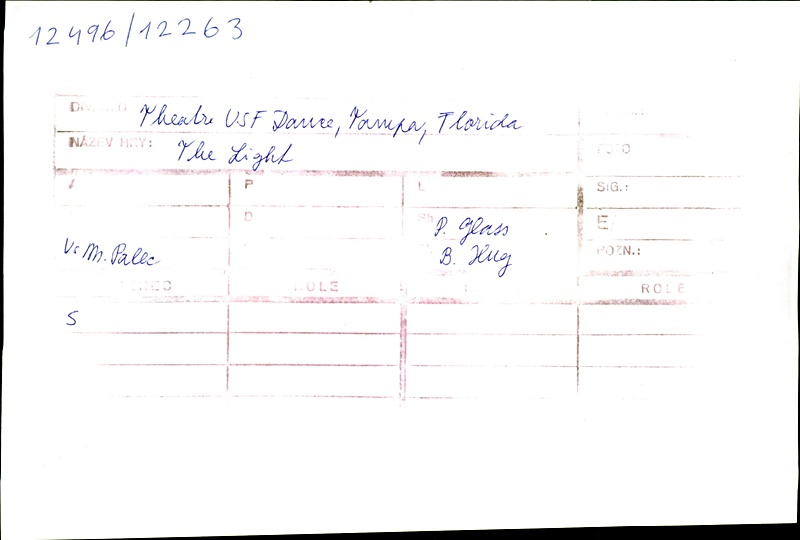 12496/12263
Theatre USF Dance, Tampa, Florida
NÁZEV HRY: The Light
FOTO
P L SIG.:
D P. Glass E
V: M. Palec B. Hug POZN.:
ROLE ROLE
S